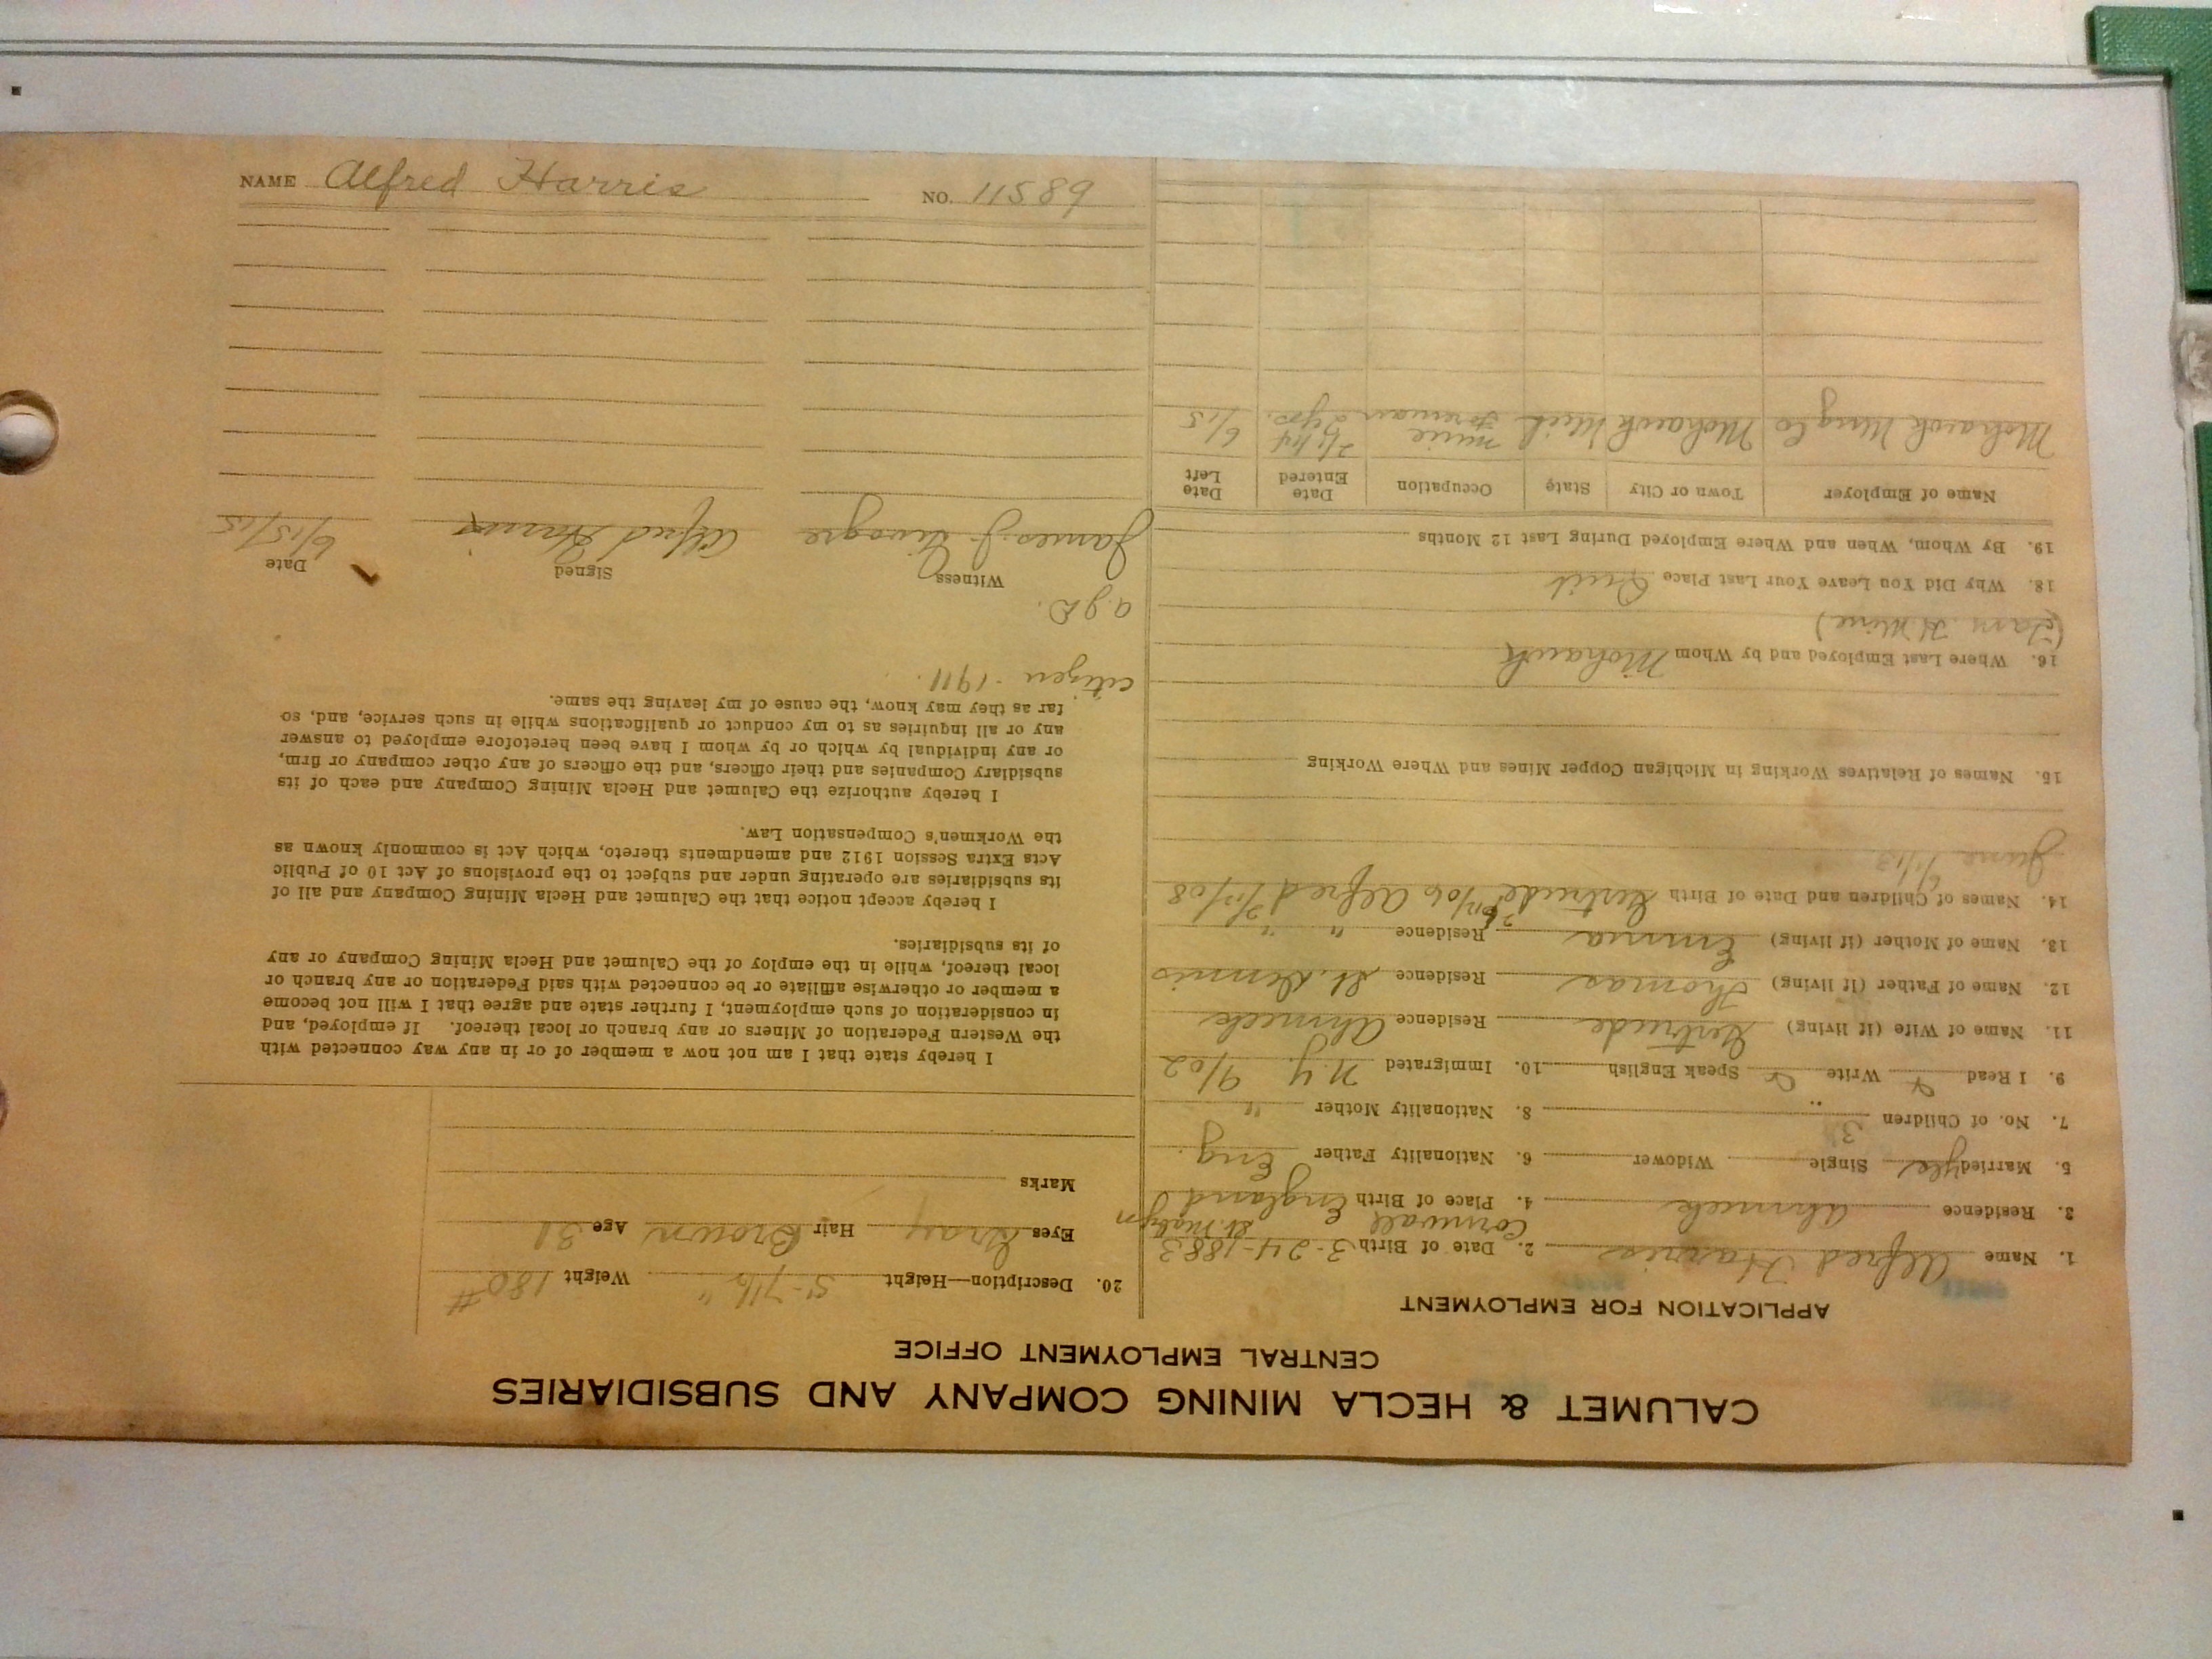 CALUMET & HECLA MINING COMPANY AND SUBSIDIARIES
CENTRAL EMPLOYMENT OFFICE
APPLICATION FOR EMPLOYMENT
1. Name Alfred Harris 2. Date of Birth 3-24-1883
Cornwall St. Mabyn
3. Residence Ahmeek 4. Place of Birth England
5. Married yes Single Widower 6. Nationality Father Eng.
7. No. of Children 3 8. Nationality Mother "
9. I Read Write Speak English 10. Immigrated N.Y. 9/02
11. Name of Wife (if living) Gertrude Residence Ahmeek
12. Name of Father (if living) Thomas Residence St. Dennis
13. Name of Mother (if living) Emma Residence " "
14. Names of Children and Date of Birth Gertrude Alfred
June 6/1/13
15. Names of Relatives Working in Michigan Copper Mines and Where Working
16. Where Last Employed and by Whom Mohawk
18. Why Did You Leave Your Last Place Quit
19. By Whom, When and Where Employed During Last 12 Months
Name of Employer Town or City State Occupation Date Entered Date Left
Mohawk Mng Co Mohawk Mich mine foreman 2 yrs. 6/15
20. Description—Height 5-7½" Weight 180#
Eyes Gray Hair Brown Age 31
Marks
I hereby state that I am not now a member of or in any way connected with
the Western Federation of Miners or any branch or local thereof. If employed, and
in consideration of such employment, I further state and agree that I will not become
a member or otherwise affiliate or be connected with said Federation or any branch or
local thereof, while in the employ of the Calumet and Hecla Mining Company or any
of its subsidiaries.
I hereby accept notice that the Calumet and Hecla Mining Company and all of
its subsidiaries are operating under and subject to the provisions of Act 10 of Public
Acts Extra Session 1912 and amendments thereto, which Act is commonly known as
the Workmen's Compensation Law.
I hereby authorize the Calumet and Hecla Mining Company and each of its
subsidiary Companies and their officers, and the officers of any other company or firm,
or any individual by which or by whom I have been heretofore employed to answer
any or all inquiries as to my conduct or qualifications while in such service, and, so
far as they may know, the cause of my leaving the same.
citizen - 1911.
Witness Signed Date
James J. Alfred Harris 6/15/15
NAME Alfred Harris NO. 11589